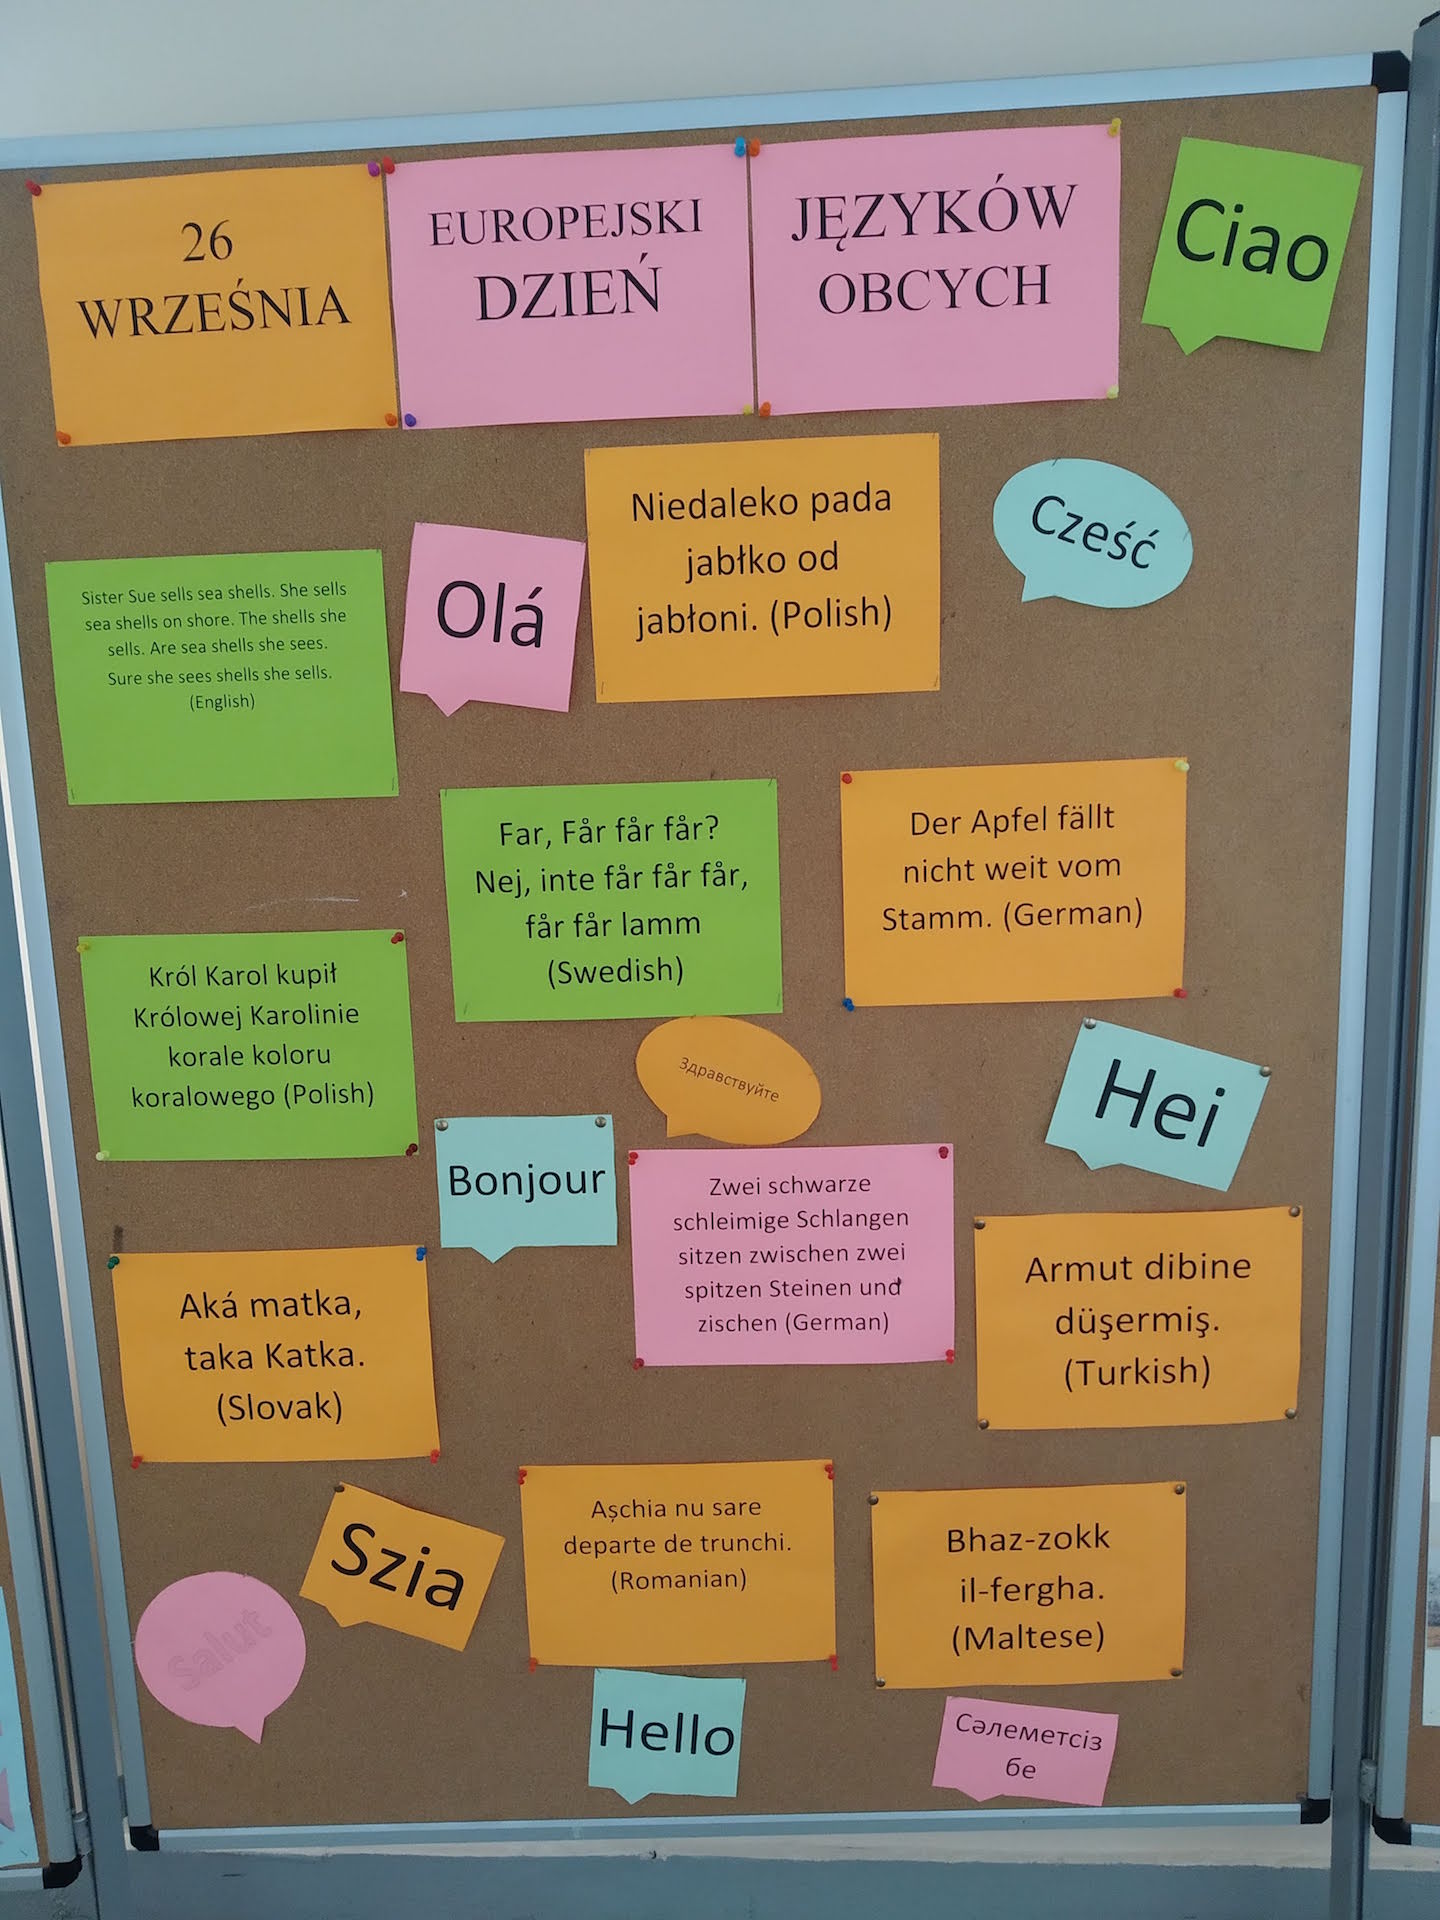 26
WRZEŚNIA
EUROPEJSKI
DZIEŃ
JĘZYKÓW
OBCYCH
Ciao
Niedaleko pada
jabłko od
jabłoni. (Polish)
Cześć
Sister Sue sells sea shells. She sells
sea shells on shore. The shells she
sells. Are sea shells she sees.
Sure she sees shells she sells.
(English)
Olá
Far, Får får får?
Nej, inte får får får,
får får lamm
(Swedish)
Der Apfel fällt
nicht weit vom
Stamm. (German)
Król Karol kupił
Królowej Karolinie
korale koloru
koralowego (Polish)
Здравствуйте
Hei
Bonjour
Zwei schwarze
schleimige Schlangen
sitzen zwischen zwei
spitzen Steinen und
zischen (German)
Armut dibine
düşermiş.
(Turkish)
Aká matka,
taka Katka.
(Slovak)
Szia
Așchia nu sare
departe de trunchi.
(Romanian)
Bhaz-zokk
il-fergha.
(Maltese)
Salut
Hello
Сәлеметсіз
бе